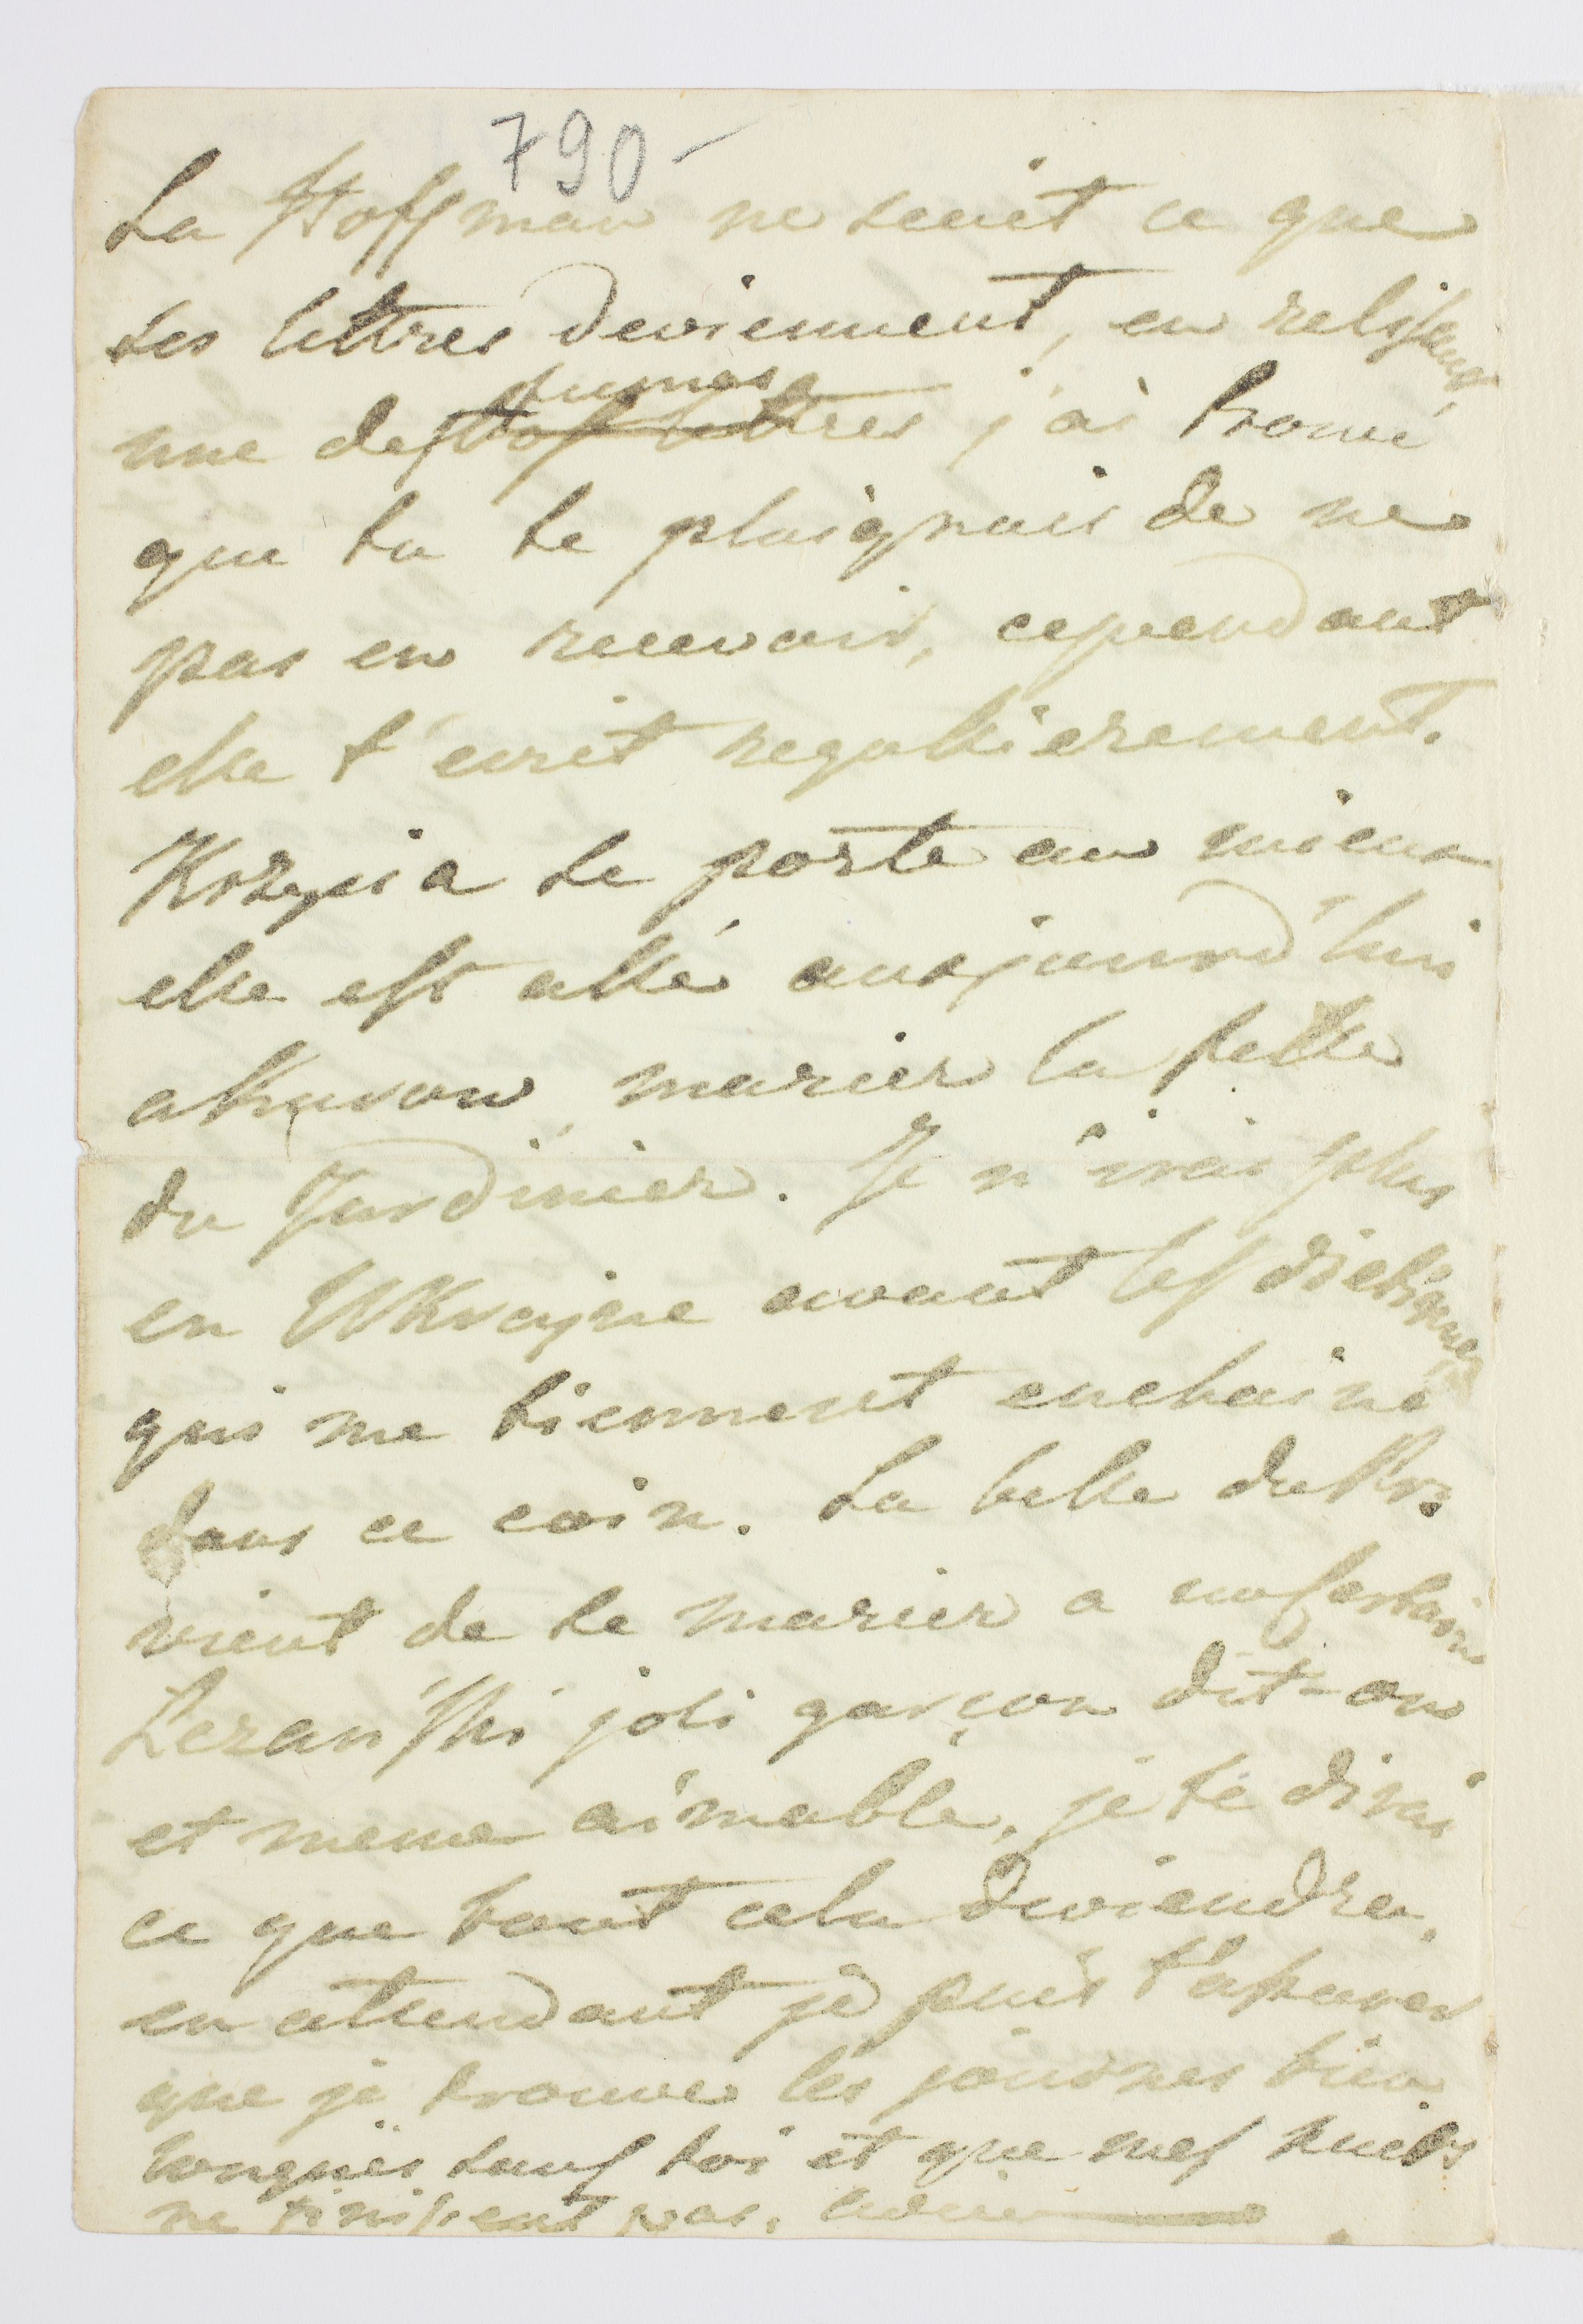 790-
La Hoffman ne scait ce que
ses lettres deviennent, en relisant
une des lettres j'ai trouvé
que tu te plaignais de ne
pas en recevoir, cependant
elle t'ecrit regullierement.
Kozysia se porte au mieux
elle est allé aujourd'hui
marier la fille
du Jardinier. Je n'irai plus
en Ukrayne avant les dietines
qui me tiennent enchainé
dans ce coin. La belle du Roi
vient de se marier a un certain
joli garçon dit-on
et meme aimable, je te dirai
ce que tout cela deviendra,
en attendant je puis t'assurer
que je trouve les journes bien
longues sans toi et que mes nuits
ne finissent pas. adieu